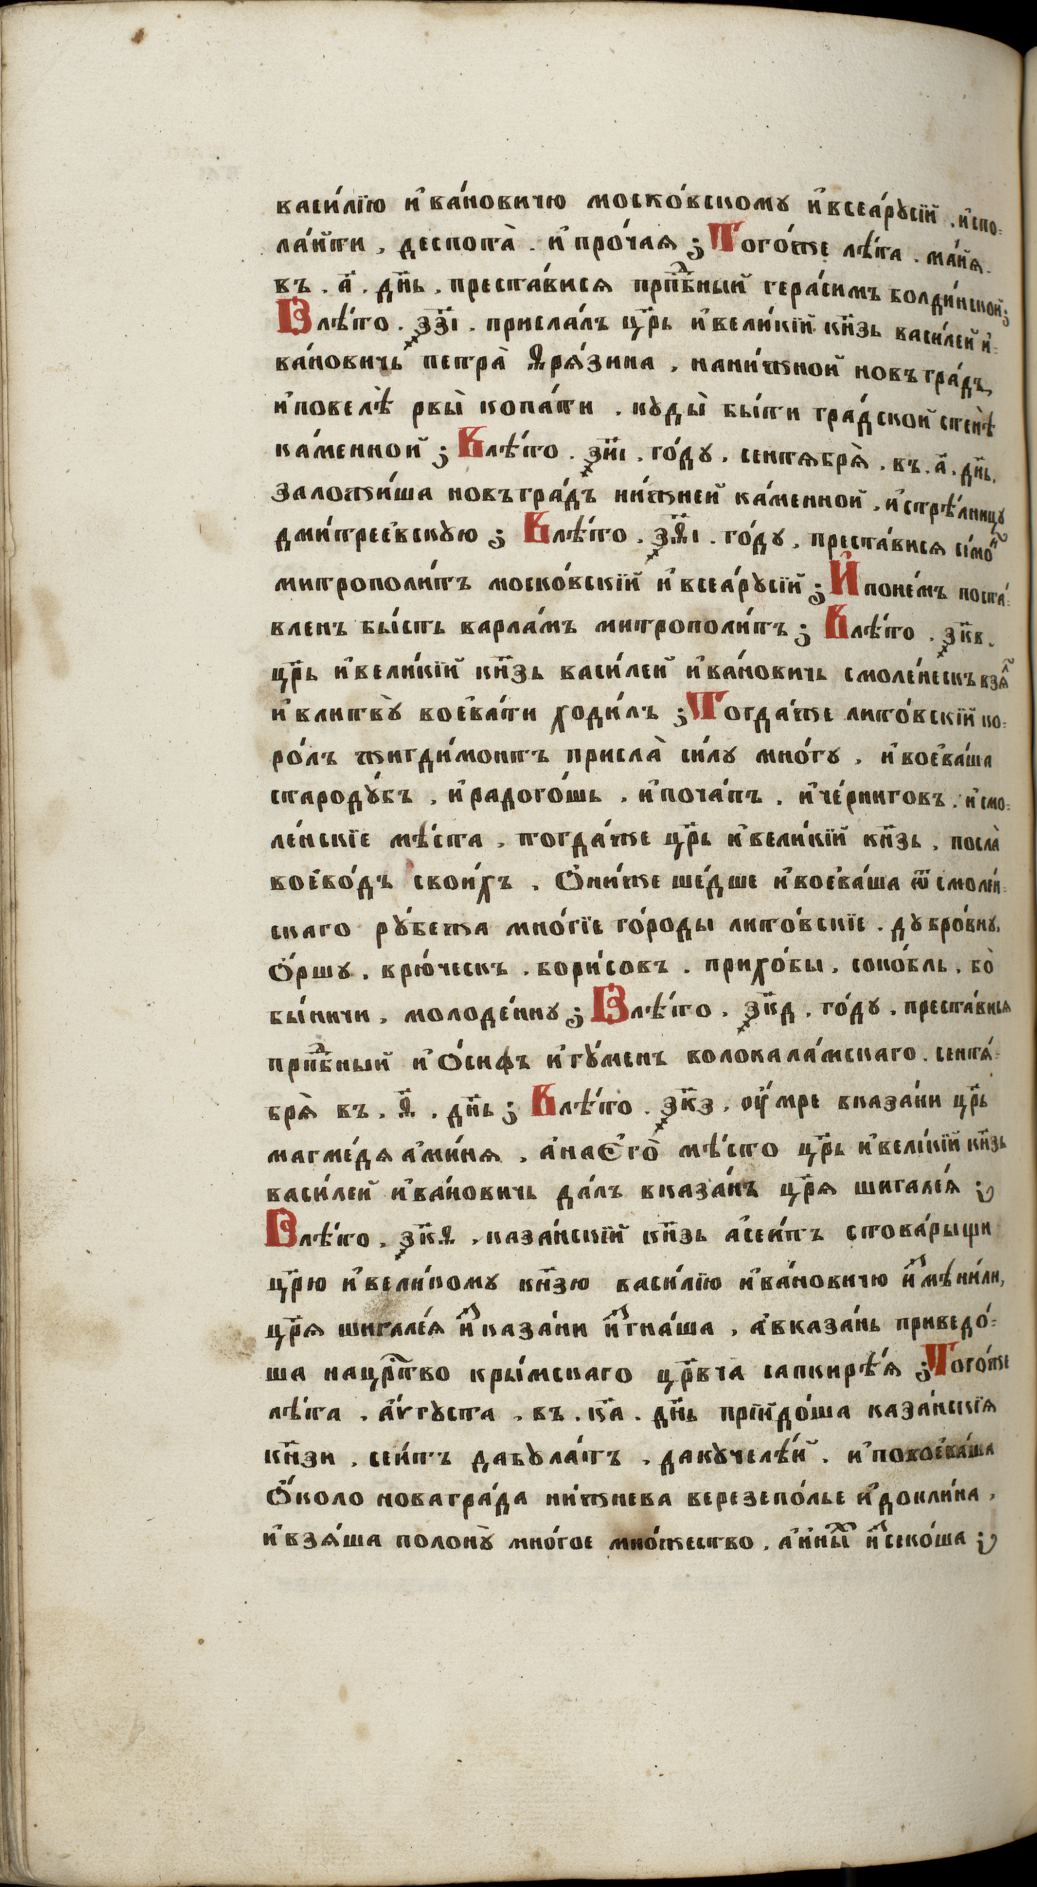 васи́лїю и҆ва́новичю моско́вскому и҆всеа́рꙋсїй . и҆спо=
ла́йти , деспота̀ . и҆ про́чая ; Того́же лѣ́та . ма́йя .
въ . а҃ . дн҃ь . преста́вися прпⷣбный гера́симъ болди́нской ;
Влѣ́то . ҂зз҃і . присла́лъ цр҃ь и҆вели́кїй кн҃зь васи́лей и҆=
ва́новичь петра̀ Ѳря́зина , нани́жной новъгра́дъ ,
и҆повелѣ̀ рвы̀ копа́ти . кꙋды̀ бы́ти гра́дской стенѣ̀
ка́менной ; Влѣ́то . ҂зи҃і . го́дꙋ . сентября̀ . въ . а҃ . дн҃ь .
заложи́ша новъгра́дъ ни́жней ка́менной , и҆стрѣ́лницꙋ
дми́треевскꙋю ; Влѣ́то . ҂зѳ҃і . го́дꙋ , преста́вися си́моⷩ
митрополи́тъ моско́вскїй и҆всеа́рꙋсїй ; И҆поне́мъ поста́=
вленъ бы́сть варла́мъ митрополи́тъ ; Влѣ́то . ҂зк҃в .
цр҃ь и҆вели́кїй кн҃зь васи́лей и҆ва́новичь смоле́нескъ взяⷧ҇
и҆влитвꙋ̀ воева́ти ходи́лъ ; Тогда́же лито́вскїй ко=
ро́лъ жигди́монтъ присла̀ си́лꙋ мно́гꙋ , и҆воева́ша
стародꙋ́бъ , и҆радого́шь , и҆поча́пъ , и҆че́рниговъ , и҆смо=
ле́нскїе мѣ́ста , тогда́же цр҃ь и҆вели́кїй кн҃зь , посла̀
воево́дъ свои́хъ . Ѻ҆ни́же ше́дше и҆воева́ша ѿ смоле́н=
скаго рꙋ́бежа мно́гїе го́роды лито́вскїе . дꙋбро́внꙋ ,
Ѻ҆́ршꙋ , врю́ческъ , бори́совъ , прихо́бы , соко́бль , бо̀
бы́ничи , молоде́чнꙋ ; Влѣ́то . ҂зк҃д , го́дꙋ , преста́вися
прпⷣбный и҆Ѻ́сифъ и҆гꙋ́менъ волокала́мскаго . сентя́=
бря̀ въ . ѳ҃ . дн҃ь ; Влѣ́то . ҂зк҃з , ᲂу҆́мре вказа́ни цр҃ь
магме́дя ами́ня , а҆наЄго̀ мѣ́сто цр҃ь и҆вели́кїй кн҃зь
васи́лей и҆ва́новичь да́лъ вказа́нъ цр҃я шигале́я ;
Влѣ́то . ҂зк҃ѳ , каза́нскїй кн҃зь асеи́тъ стова́рыщи
цр҃ю и҆вели́комꙋ кн҃зю васи́лїю и҆ва́новичю и҆ⷥмѣни́ли ,
цр҃я шигале́я и҆ⷥказа́ни и҆ⷥгна́ша , а҆вказа́нь приведо́=
ша нацрⷭ҇тво кры́мскаго цр҃вча сапкирѣ́я ; Того́же
лѣ́та . а҆́ѵгꙋста . въ . к҃а . дн҃ь прїидо́ша каза́нскїя
кн҃зи , сеи́тъ дабꙋла́тъ , дакꙋчелѣ́й . и҆повоева́ша
Ѻ҆́коло новагра́да ни́жнева березепо́лье и҆доклина̀ ,
и҆взя́ша полонꙋ̀ мно́гое мно́жество , а҆и҆ны́ⷯ и҆ⷥсеко́ша ;